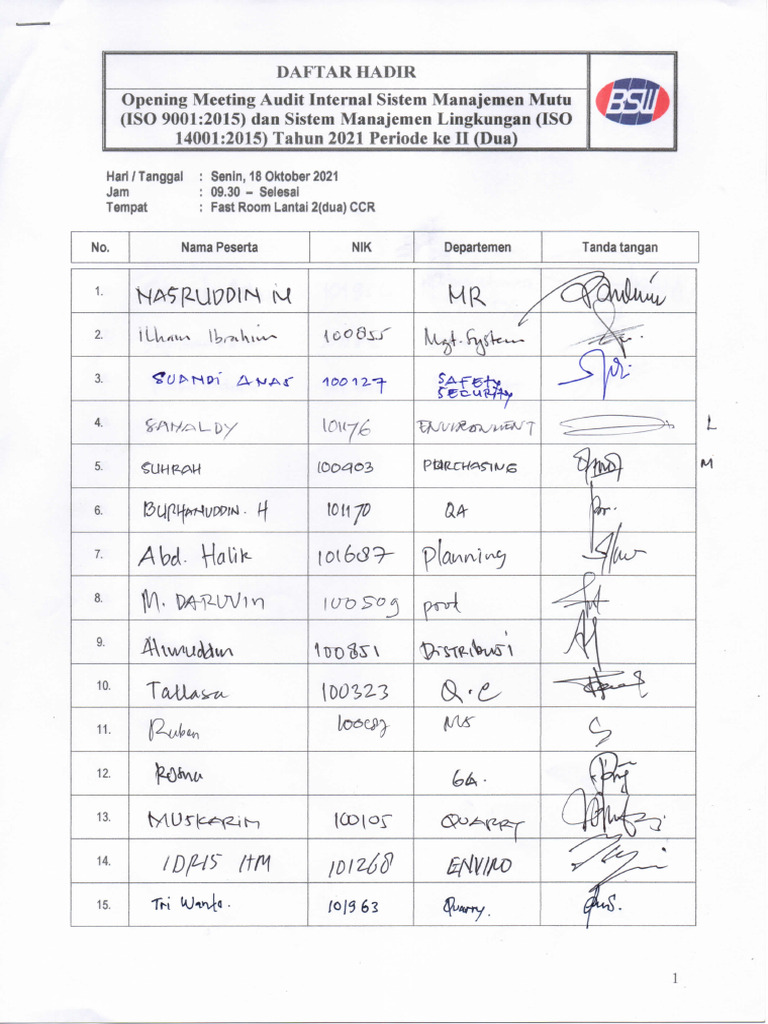 DAFTAR HADIR
Opening Meeting Audit Internal Sistem Manajemen Mutu
(ISO 9001:2015) dan Sistem Manajemen Lingkungan (ISO
14001:2015) Tahun 2021 Periode ke II (Dua)
BSW
Hari / Tanggal : Senin, 18 Oktober 2021
Jam : 09.30 – Selesai
Tempat : Fast Room Lantai 2(dua) CCR
No. Nama Peserta NIK Departemen Tanda tangan
1. NASRUDDIN M MR
2. Ilham Ibrahim 100855 Mgt. System
3. SUANDI ANAS 100127 SAFETY SECURITY
4. SAHALDY 101176 ENVIRONMENT L
5. SUHRAH 100403 PURCHASING M
6. BURHANUDDIN. H 101170 QA
7. Abd. Halik 101687 Planning
8. M. DARUVIN 100509 prod
9. Alimuddin 100851 DISTRIBUSI
10. Tallasa 100323 Q.C
11. Ruben MS
12. Rosna GA.
13. MUSKARIM 100105 QUARRY
14. IDRIS HM 101268 ENVIRO
15. Tri Wanto. 101963 Quarry.
1